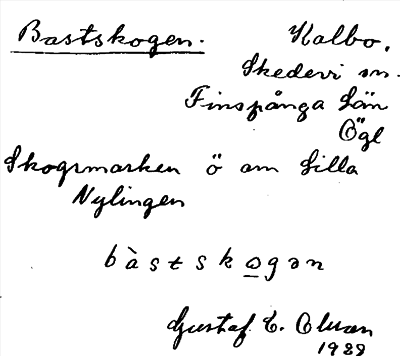 Bastskogen. Kalbo,
Skedevi sn.
Finspånga län
Ögl
Skogsmarken ö om Lilla
Nylingen
bàstskogən
Gustaf E. Olsson